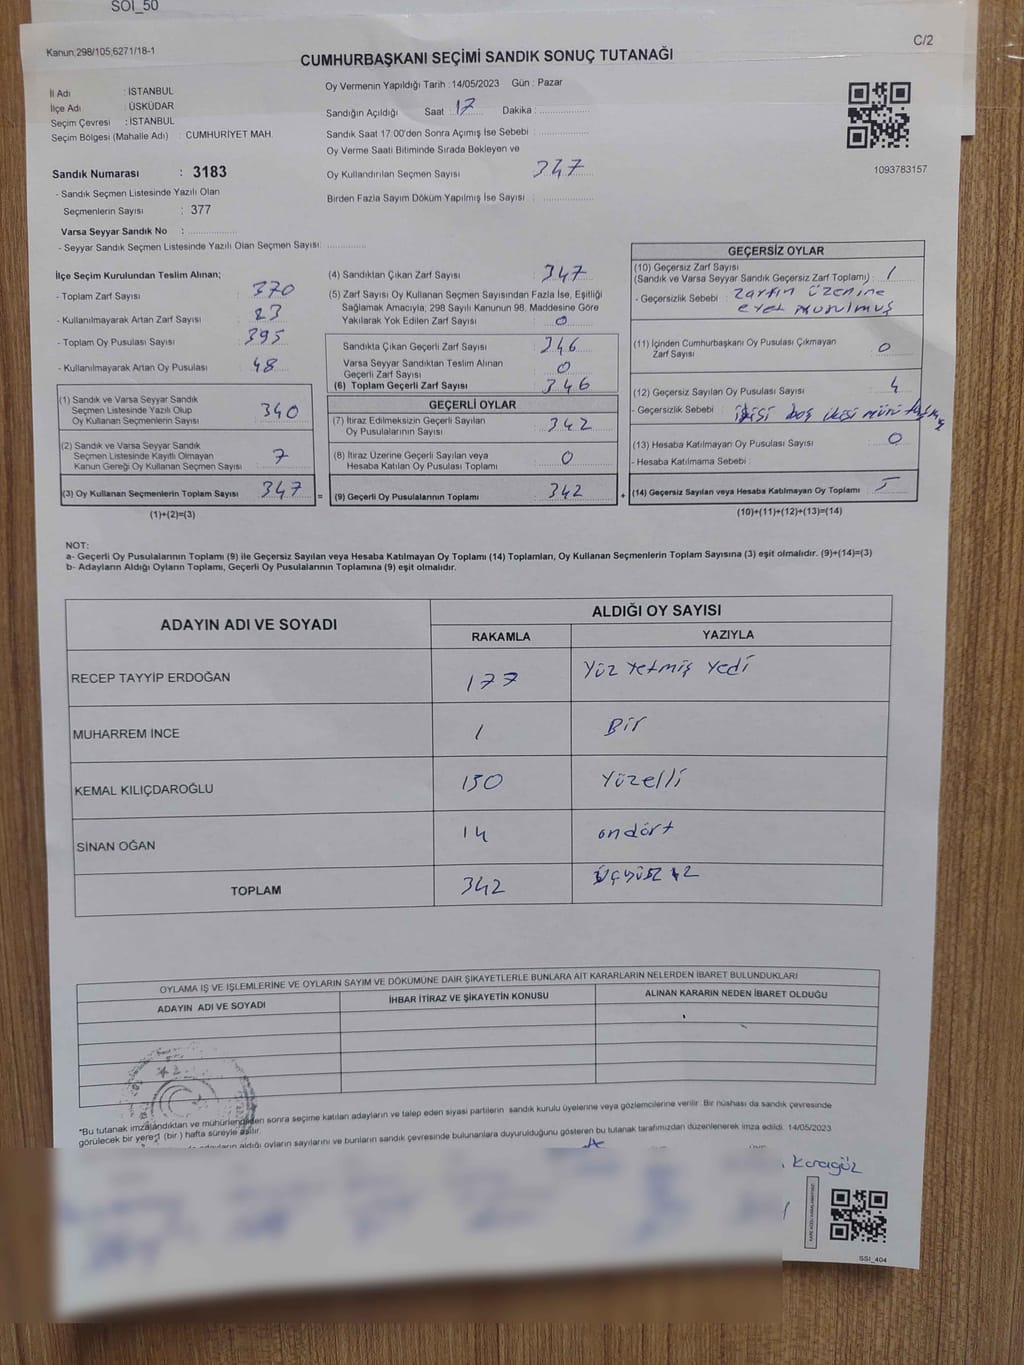 SOI_50
Kanun;298/105;6271/18-1
C/2
CUMHURBAŞKANI SEÇİMİ SANDIK SONUÇ TUTANAĞI
İl Adı : İSTANBUL
İlçe Adı : ÜSKÜDAR
Seçim Çevresi : İSTANBUL
Seçim Bölgesi (Mahalle Adı) : CUMHURİYET MAH.
Sandık Numarası : 3183
- Sandık Seçmen Listesinde Yazılı Olan
Seçmenlerin Sayısı : 377
Varsa Seyyar Sandık No :
- Seyyar Sandık Seçmen Listesinde Yazılı Olan Seçmen Sayısı:
Oy Vermenin Yapıldığı Tarih : 14/05/2023 Gün : Pazar
Sandığın Açıldığı Saat : 17 Dakika :
Sandık Saat 17:00'den Sonra Açımış İse Sebebi :
Oy Verme Saati Bitiminde Sırada Bekleyen ve
Oy Kullandırılan Seçmen Sayısı 347
Birden Fazla Sayım Döküm Yapılmış İse Sayısı :
1093783157
İlçe Seçim Kurulundan Teslim Alınan;
- Toplam Zarf Sayısı 370
- Kullanılmayarak Artan Zarf Sayısı : 23
- Toplam Oy Pusulası Sayısı : 395
- Kullanılmayarak Artan Oy Pusulası : 48
(1) Sandık ve Varsa Seyyar Sandık
Seçmen Listesinde Yazılı Olup
Oy Kullanan Seçmenlerin Sayısı 340
(2) Sandık ve Varsa Seyyar Sandık
Seçmen Listesinde Kayıtlı Olmayan
Kanun Gereği Oy Kullanan Seçmen Sayısı 7
(3) Oy Kullanan Seçmenlerin Toplam Sayısı 347 =
(1)+(2)=(3)
(4) Sandıktan Çıkan Zarf Sayısı 347
(5) Zarf Sayısı Oy Kullanan Seçmen Sayısından Fazla İse, Eşitliği
Sağlamak Amacıyla, 298 Sayılı Kanunun 98. Maddesine Göre
Yakılarak Yok Edilen Zarf Sayısı : 0
Sandıkta Çıkan Geçerli Zarf Sayısı : 346
Varsa Seyyar Sandıktan Teslim Alınan
Geçerli Zarf Sayısı 0
(6) Toplam Geçerli Zarf Sayısı : 346
GEÇERLİ OYLAR
(7) İtiraz Edilmeksizin Geçerli Sayılan
Oy Pusulalarının Sayısı : 342
(8) İtiraz Üzerine Geçerli Sayılan veya
Hesaba Katılan Oy Pusulası Toplamı 0
(9) Geçerli Oy Pusulalarının Toplamı : 342 +
GEÇERSİZ OYLAR
(10) Geçersiz Zarf Sayısı
(Sandık ve Varsa Seyyar Sandık Geçersiz Zarf Toplamı) : 1
- Geçersizlik Sebebi : zarfın üzerine
evet vurulmuş
(11) İçinden Cumhurbaşkanı Oy Pusulası Çıkmayan
Zarf Sayısı 0
(12) Geçersiz Sayılan Oy Pusulası Sayısı 4
- Geçersizlik Sebebi : ikisi boş ikisi mürü
(13) Hesaba Katılmayan Oy Pusulası Sayısı 0
- Hesaba Katılmama Sebebi :
(14) Geçersiz Sayılan veya Hesaba Katılmayan Oy Toplamı 5
(10)+(11)+(12)+(13)=(14)
NOT:
a- Geçerli Oy Pusulalarının Toplamı (9) ile Geçersiz Sayılan veya Hesaba Katılmayan Oy Toplamı (14) Toplamları, Oy Kullanan Seçmenlerin Toplam Sayısına (3) eşit olmalıdır. (9)+(14)=(3)
b- Adayların Aldığı Oyların Toplamı, Geçerli Oy Pusulalarının Toplamına (9) eşit olmalıdır.
ADAYIN ADI VE SOYADI
ALDIĞI OY SAYISI
RAKAMLA YAZIYLA
RECEP TAYYİP ERDOĞAN 177 Yüz Yetmiş Yedi
MUHARREM İNCE 1 Bir
KEMAL KILIÇDAROĞLU 150 Yüzelli
SİNAN OĞAN 14 ondört
TOPLAM 342 Üçyüz 42
OYLAMA İŞ VE İŞLEMLERİNE VE OYLARIN SAYIM VE DÖKÜMÜNE DAİR ŞİKAYETLERLE BUNLARA AİT KARARLARIN NELERDEN İBARET BULUNDUKLARI
ADAYIN ADI VE SOYADI İHBAR İTİRAZ VE ŞİKAYETİN KONUSU ALINAN KARARIN NEDEN İBARET OLDUĞU
*Bu tutanak imzalandıktan ve mühürlendikten sonra seçime katılan adayların ve talep eden siyasi partilerin sandık kurulu üyelerine veya gözlemcilerine verilir. Bir nüshası da sandık çevresinde
görülecek bir yere 1 (bir ) hafta süreyle asılır.
adayların aldığı oyların sayılarını ve bunların sandık çevresinde bulunanlara duyurulduğunu gösteren bu tutanak tarafımızdan düzenlenerek imza edildi. 14/05/2023
Karagöz
SSI_404